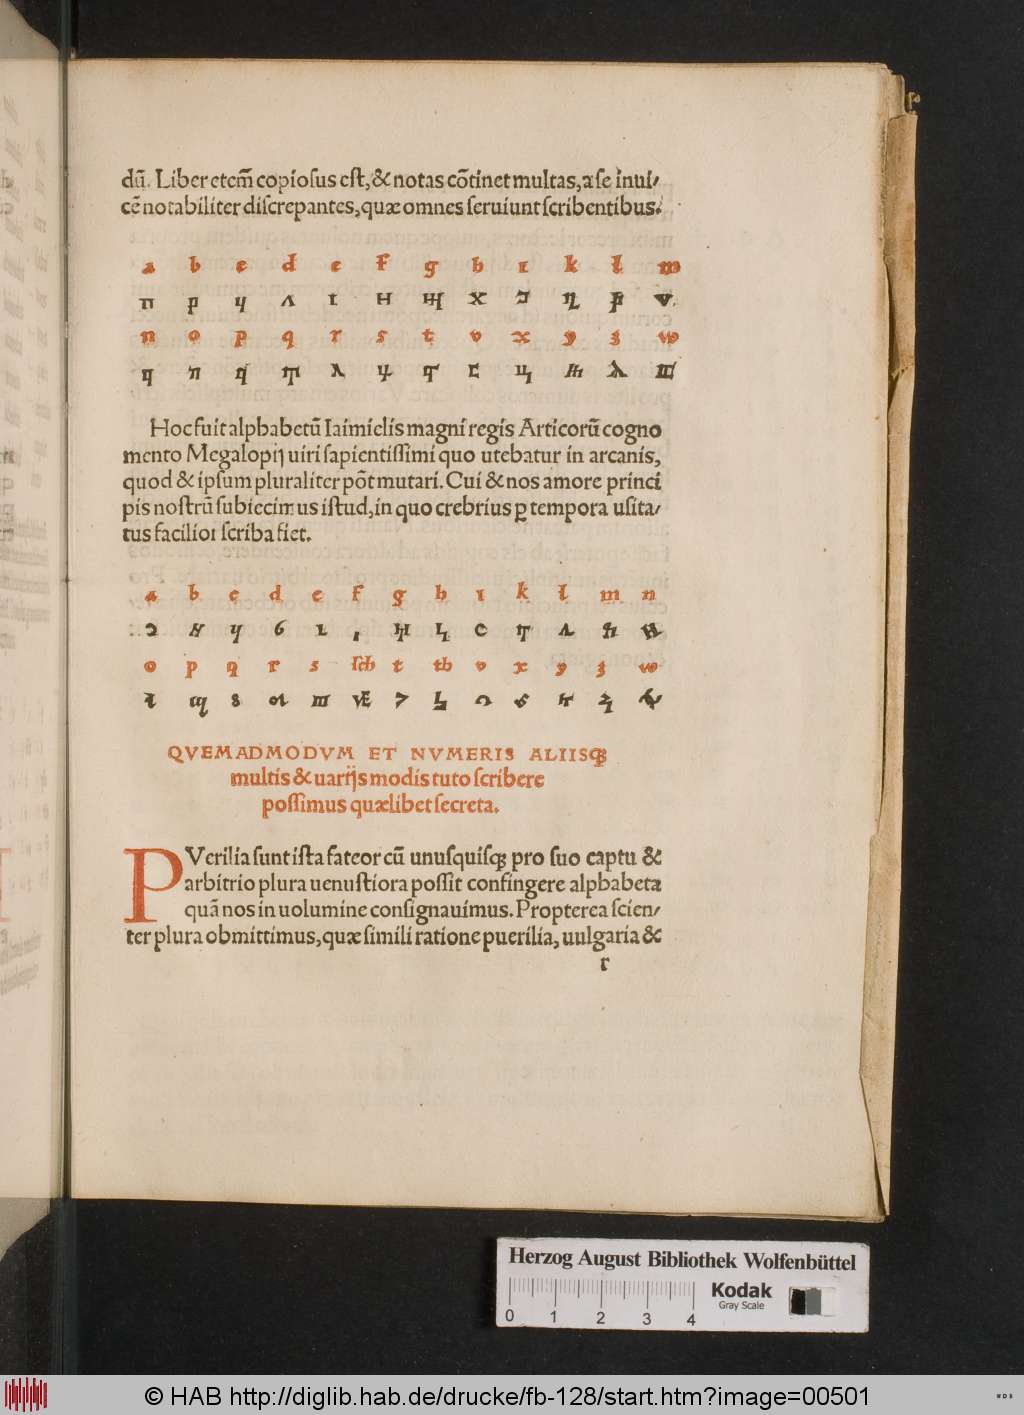 dũ. Liber etem̃ copiosus est, & notas cõtinet multas, a se inui/
cẽ notabiliter discrepantes, quæ omnes seruiunt scribentibus.
a b c d e f g h i k l m
n o p q r s t v x y z w
Hoc fuit alphabetũ Iaimielis magni regis Articorũ cogno
mento Megalopij uiri sapientissimi quo utebatur in arcanis,
quod & ipsum pluraliter põt mutari. Cui & nos amore princi
pis nostrũ subiecimus istud, in quo crebrius ꝑ tempora usita/
tus facilior scriba fiet.
a b c d e f g h i k l m n
o p q r s sch t th v x y z w
QVEMADMODVM ET NVMERIS ALIISQꝫ
multis & uarijs modis tuto scribere
possimus quælibet secreta.
PVerilia sunt ista fateor cũ unusquisqꝫ pro suo captu &
arbitrio plura uenustiora possit confingere alphabeta
quã nos in uolumine consignauimus. Propterea scien/
ter plura obmittimus, quæ simili ratione puerilia, uulgaria &
r
Herzog August Bibliothek Wolfenbüttel
Kodak
Gray Scale
0 1 2 3 4
© HAB http://diglib.hab.de/drucke/fb-128/start.htm?image=00501